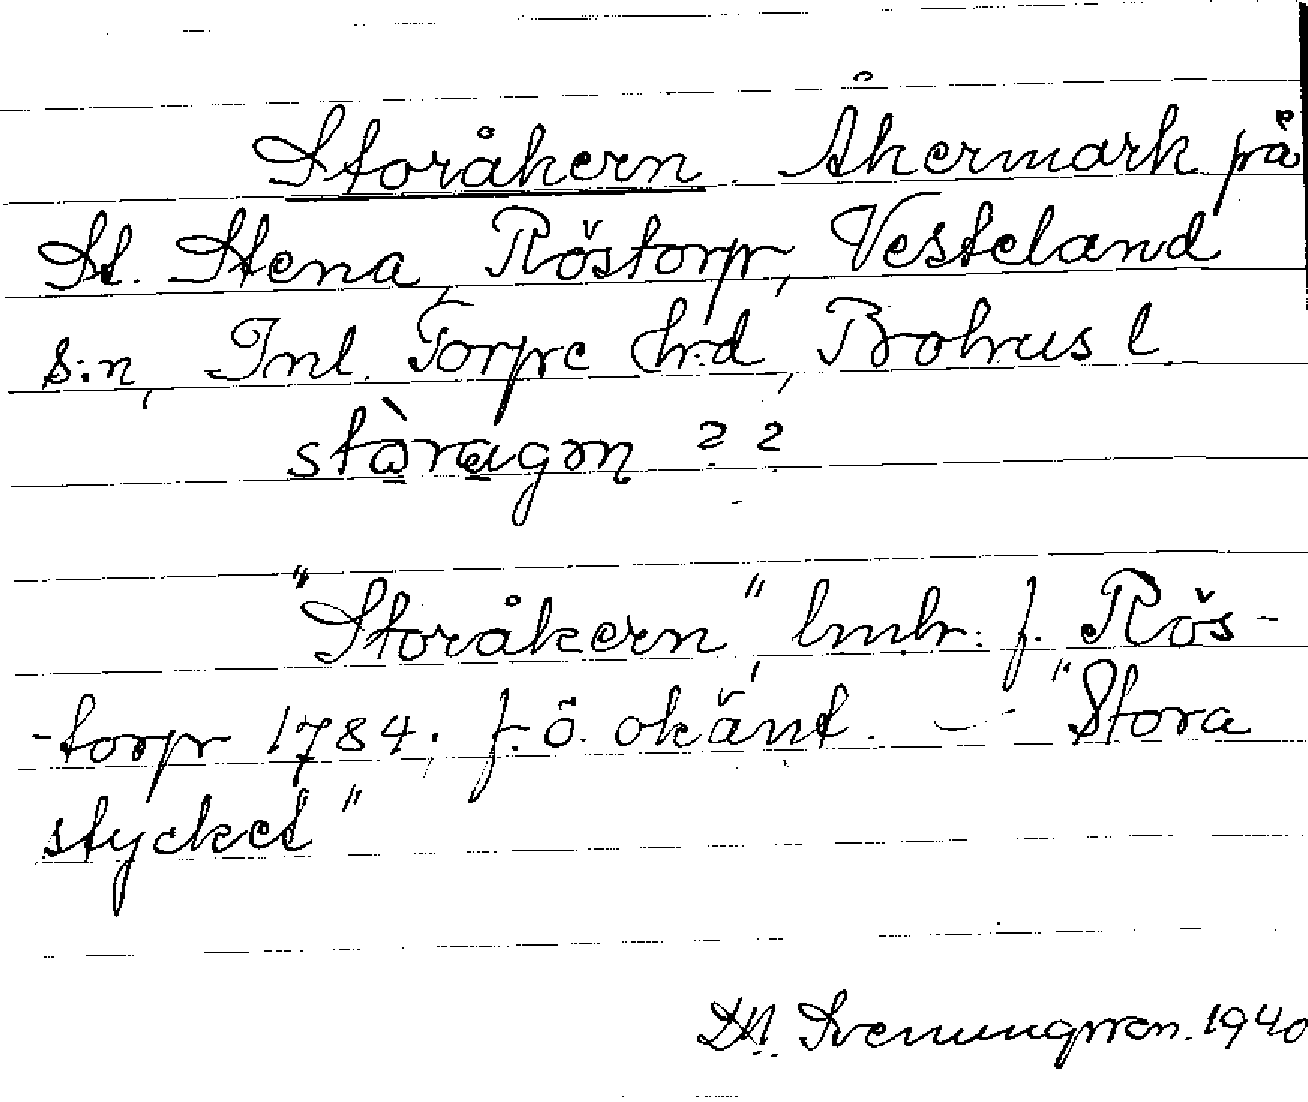 Storåkern. Åkermark på
St. Stena, Röstorp, Vesteland
s:n, Inl. Torpe hrd, Bohus l.
stòragon ? ?
"Storåkern", lmhr. f. Rös-
-torp 1784; f. ö. okänt. — "Stora
stycket"
D.A. Svenungsson. 1940